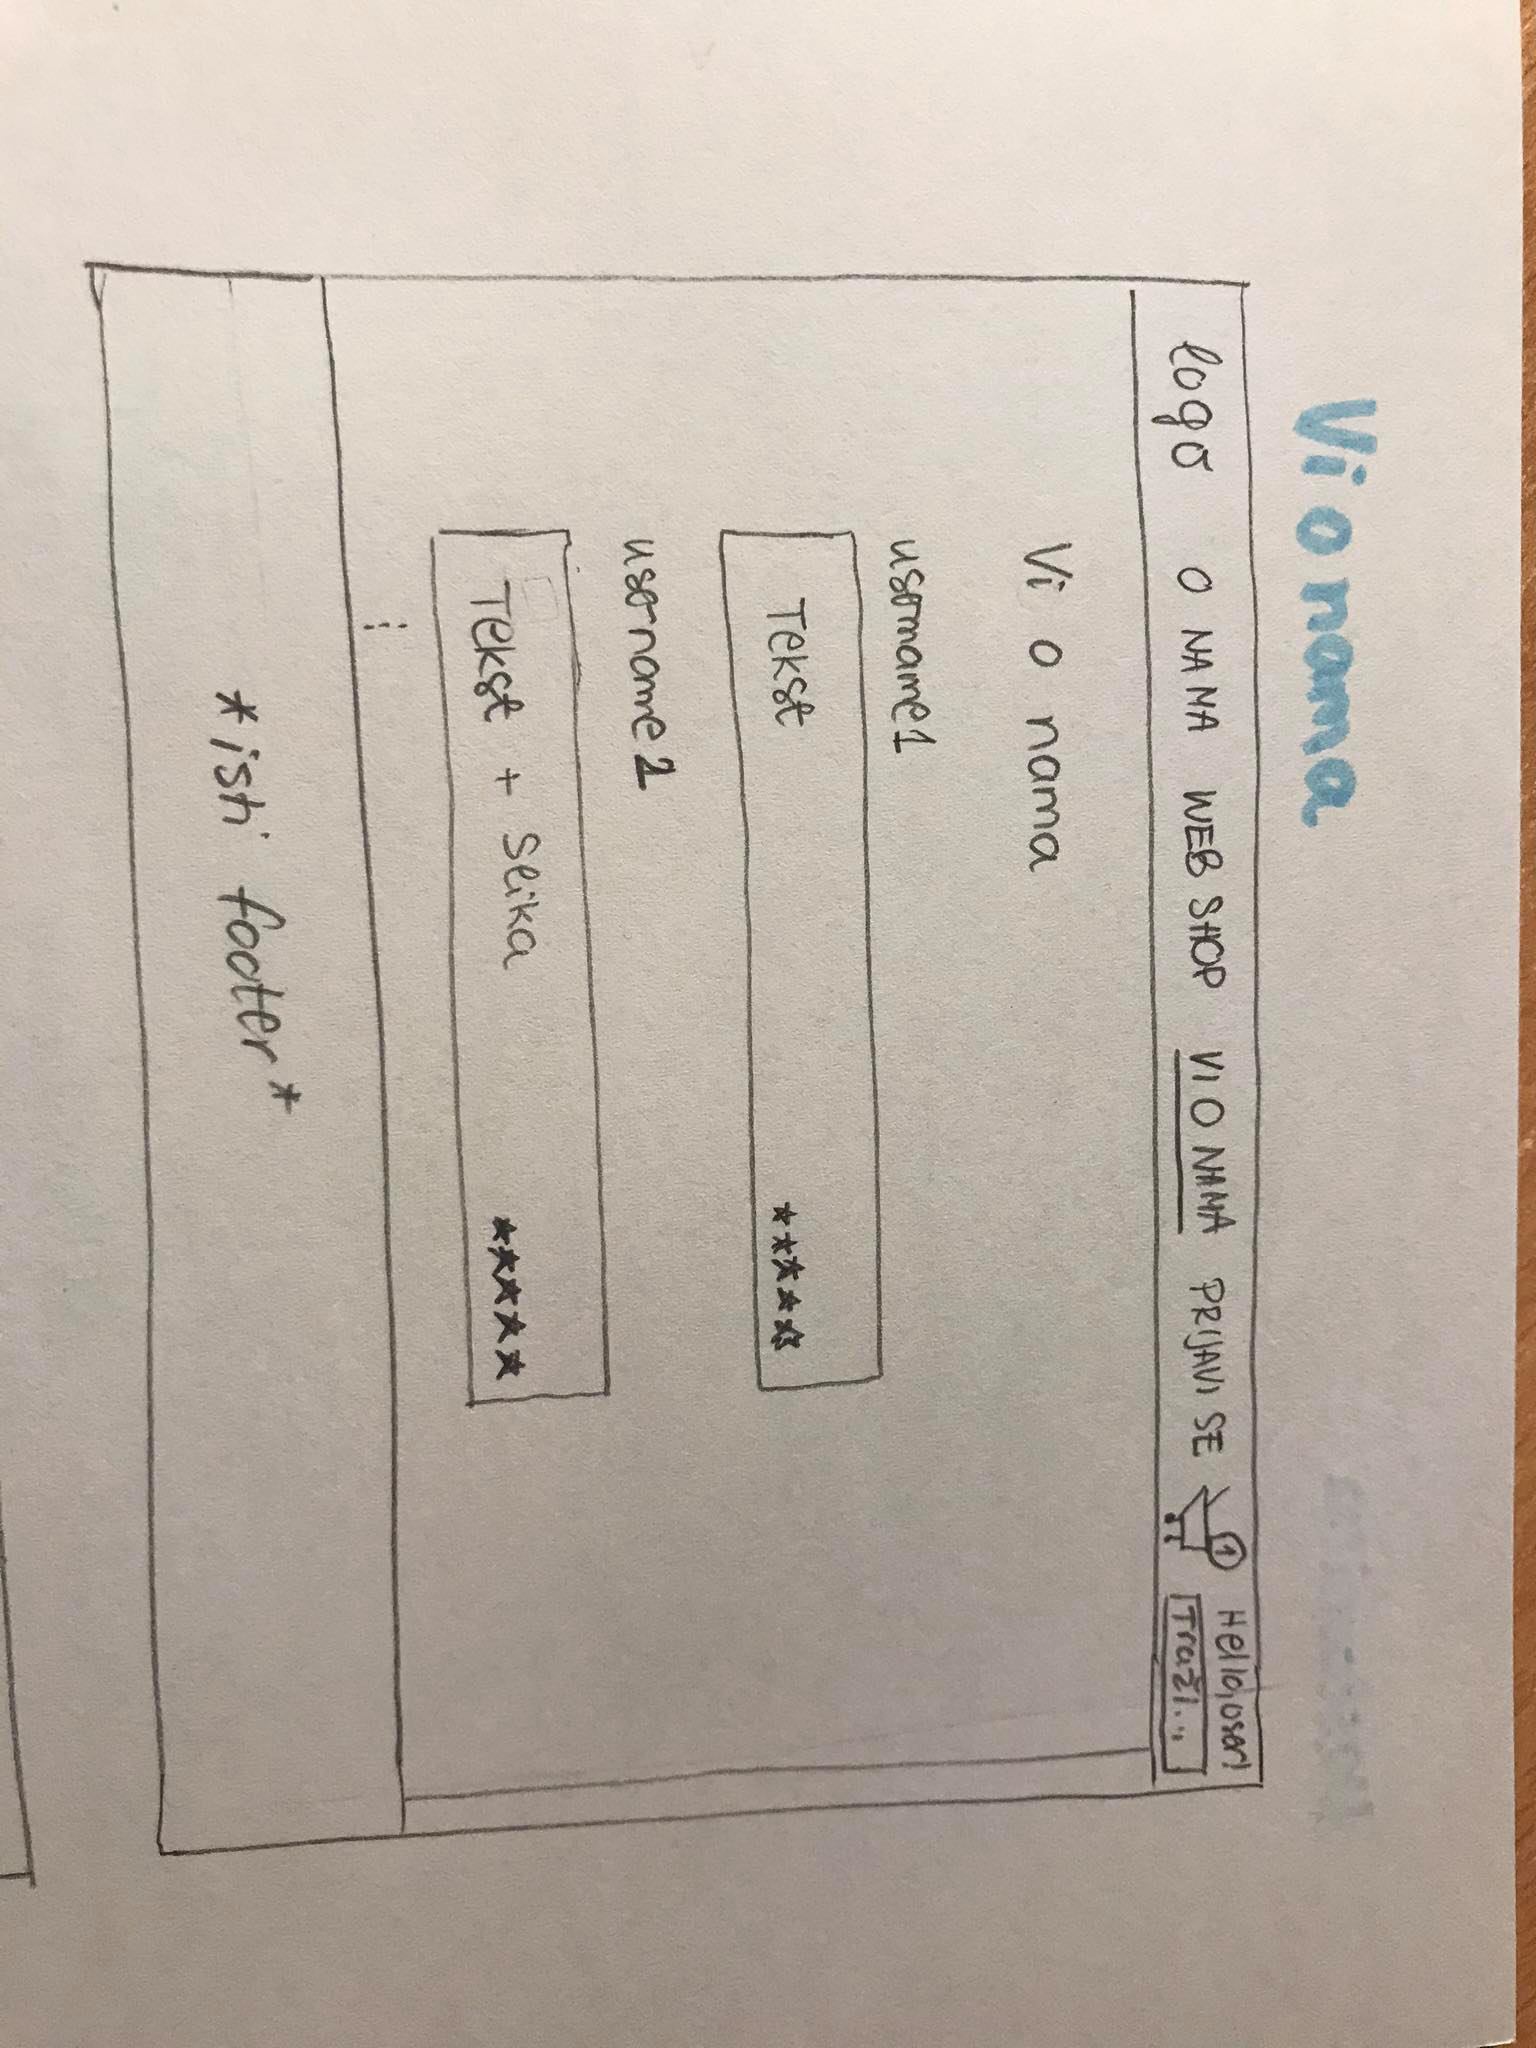 Vi o nama
logo O NAMA WEB SHOP VI O NAMA PRIJAVI SE 1 Hello, user!
Traži...
Vi o nama
username1
Tekst
username2
Tekst + slika
*isti footer*